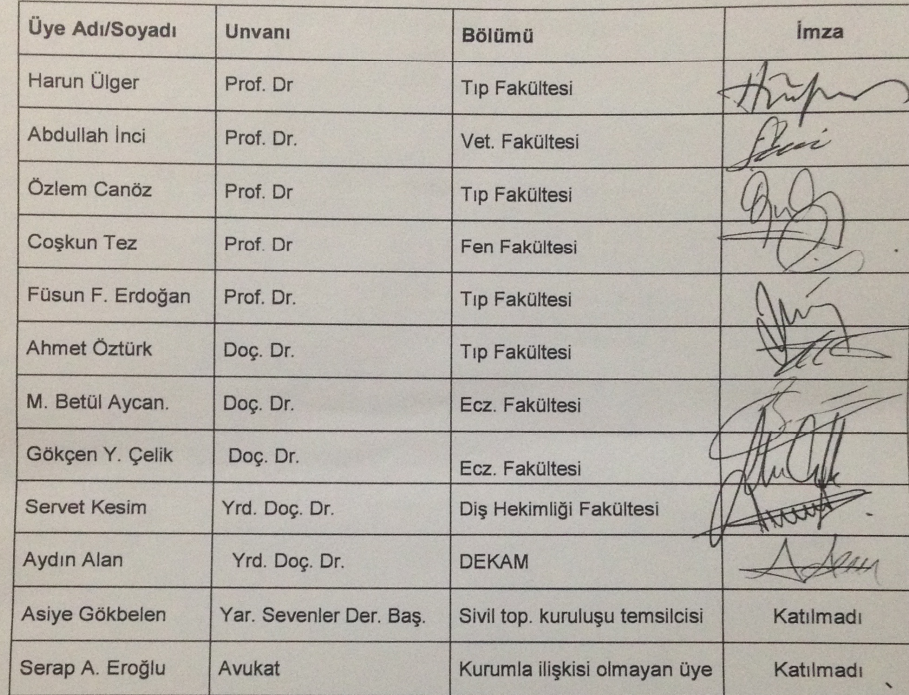 Üye Adı/Soyadı Unvanı Bölümü İmza
Harun Ülger Prof. Dr Tıp Fakültesi
Abdullah İnci Prof. Dr. Vet. Fakültesi
Özlem Canöz Prof. Dr Tıp Fakültesi
Coşkun Tez Prof. Dr Fen Fakültesi
Füsun F. Erdoğan Prof. Dr. Tıp Fakültesi
Ahmet Öztürk Doç. Dr. Tıp Fakültesi
M. Betül Aycan. Doç. Dr. Ecz. Fakültesi
Gökçen Y. Çelik Doç. Dr. Ecz. Fakültesi
Servet Kesim Yrd. Doç. Dr. Diş Hekimliği Fakültesi
Aydın Alan Yrd. Doç. Dr. DEKAM
Asiye Gökbelen Yar. Sevenler Der. Baş. Sivil top. kuruluşu temsilcisi Katılmadı
Serap A. Eroğlu Avukat Kurumla ilişkisi olmayan üye Katılmadı